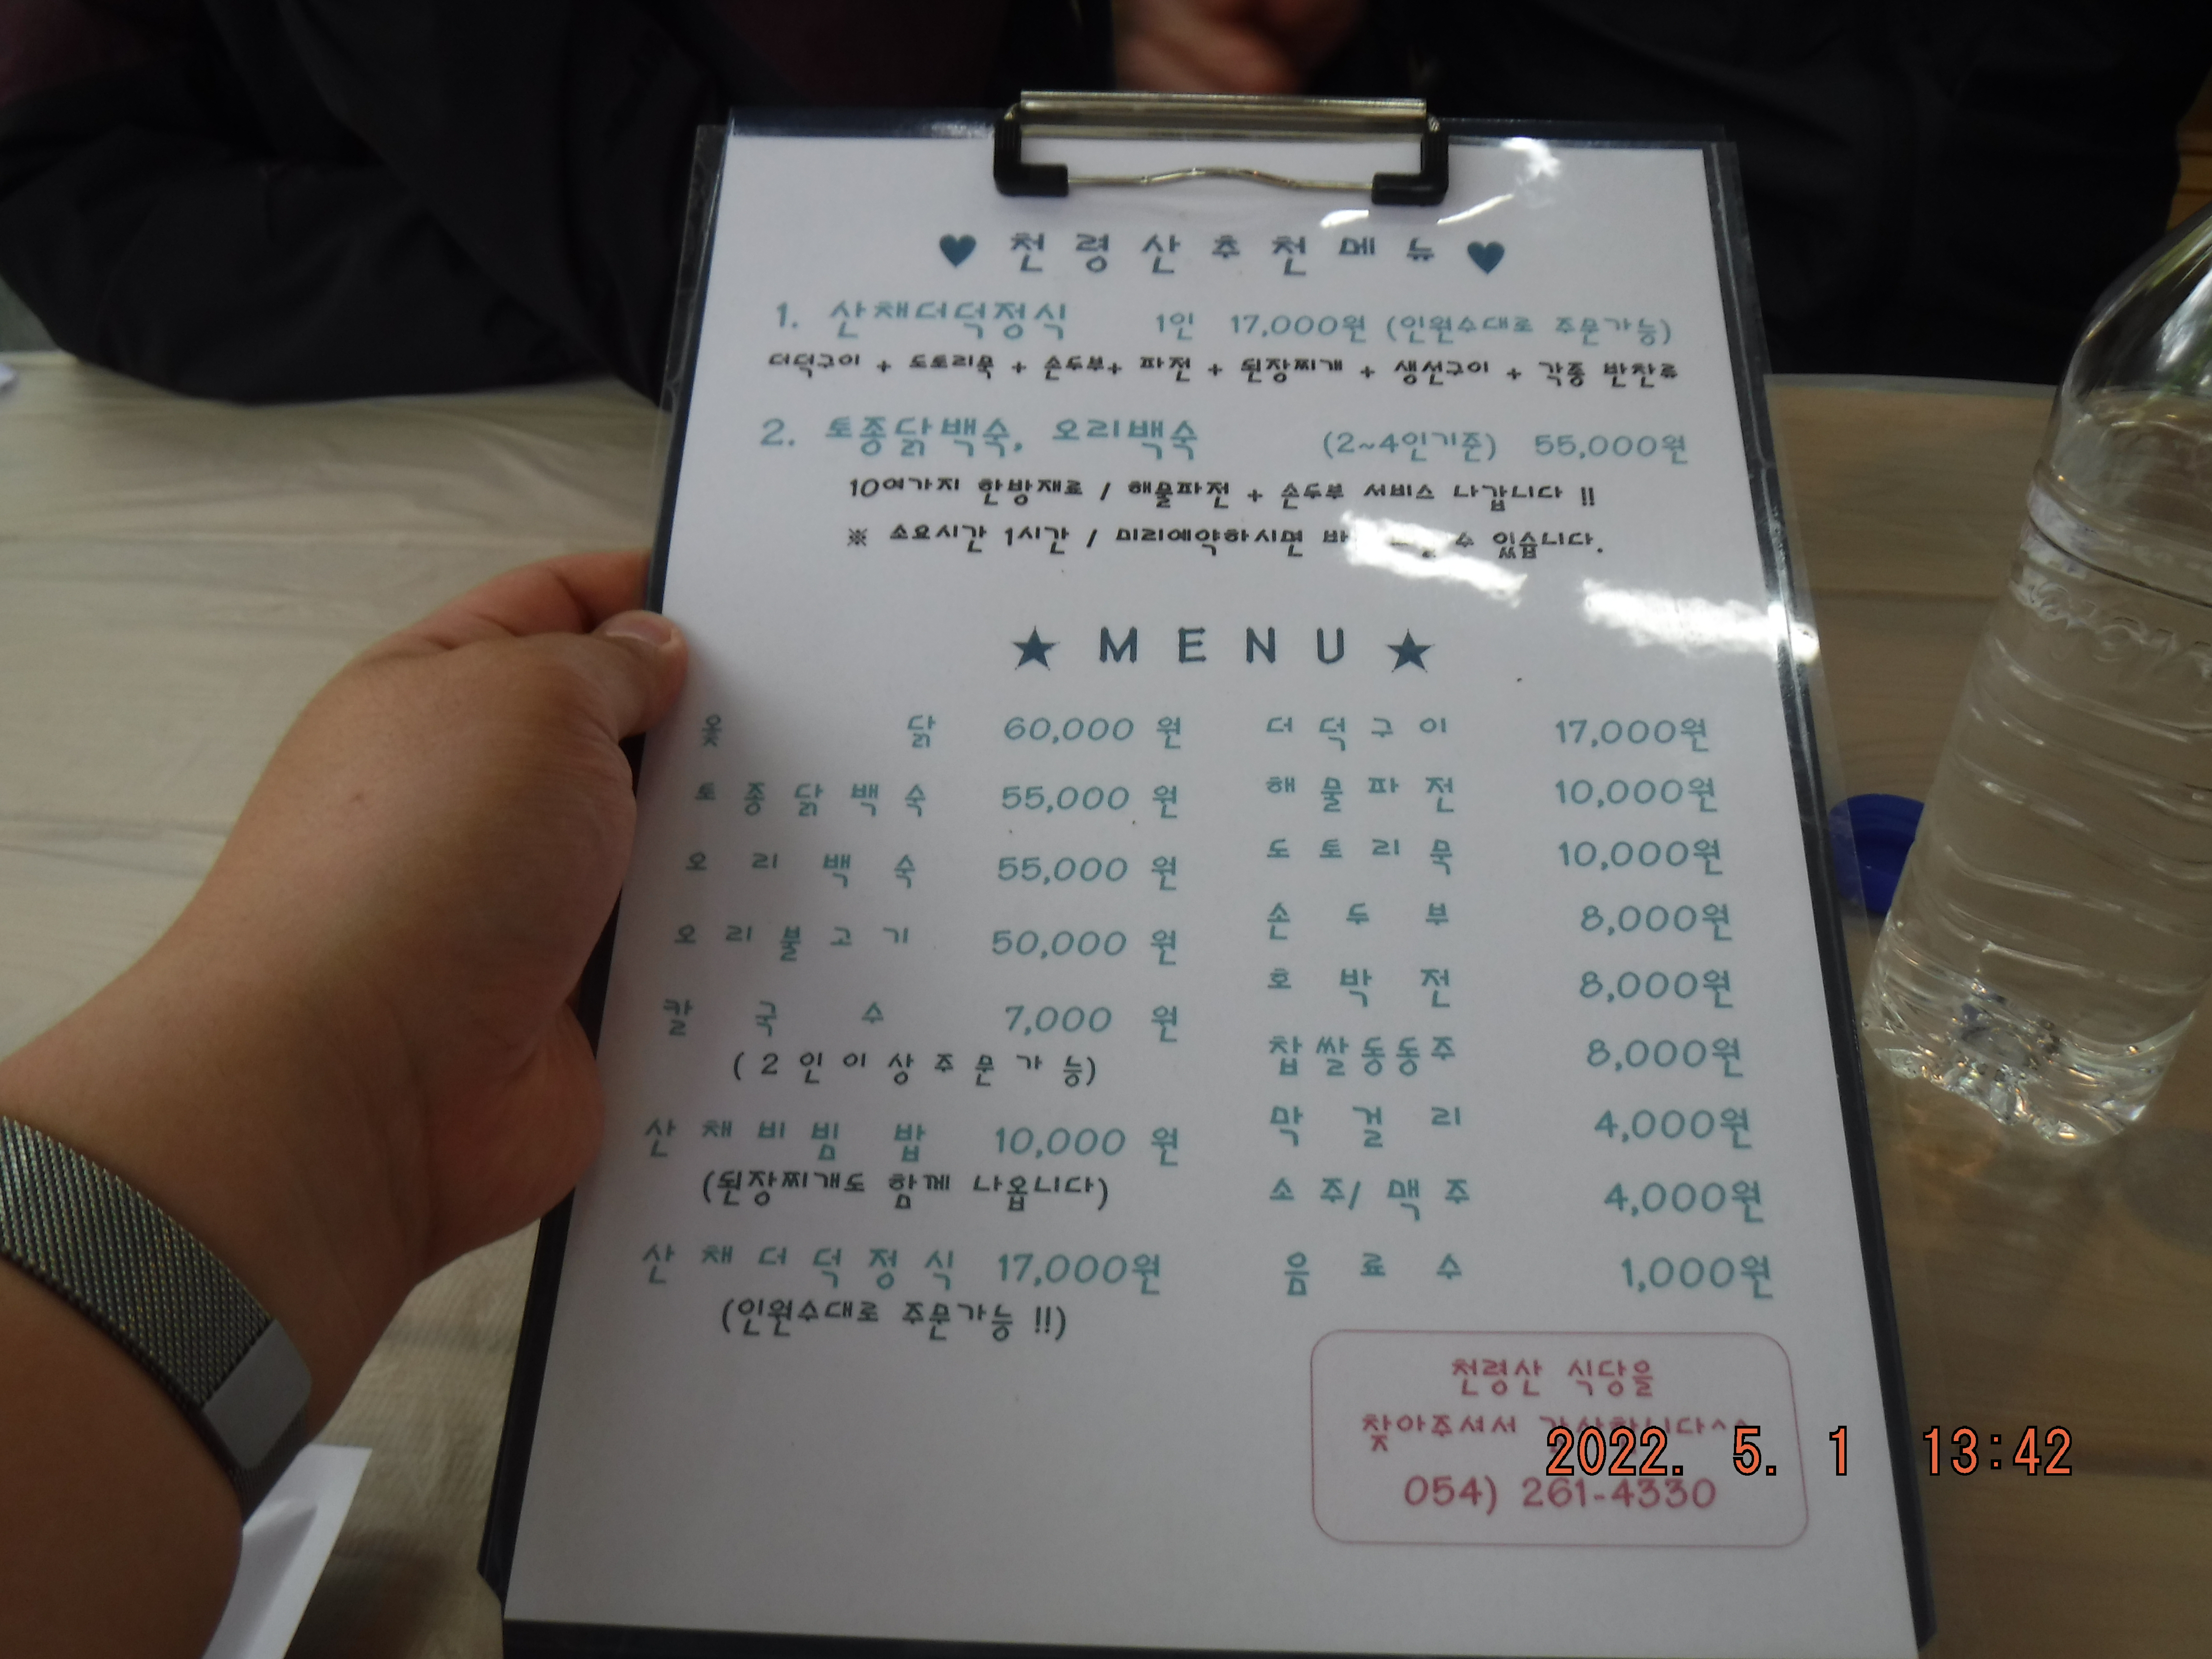 ♥ 천령산추천메뉴 ♥
1. 산채더덕정식 1인 17,000원 (인원수대로 주문가능)
더덕구이 + 도토리묵 + 손두부+ 파전 + 된장찌개 + 생선구이 + 각종 반찬류
2. 토종닭백숙, 오리백숙 (2~4인기준) 55,000원
10여가지 한방재료 / 해물파전 + 손두부 서비스 나갑니다 !!
※ 소요시간 1시간 / 미리예약하시면 수 있습니다.
★ MENU ★
옻닭 60,000 원
토종닭백숙 55,000 원
오리백숙 55,000 원
오리불고기 50,000 원
칼국수 7,000 원
(2인이상주문가능)
산채비빔밥 10,000 원
(된장찌개도 함께 나옵니다)
산채더덕정식 17,000원
(인원수대로 주문가능 !!)
더덕구이 17,000원
해물파전 10,000원
도토리묵 10,000원
손두부 8,000원
호박전 8,000원
찹쌀동동주 8,000원
막걸리 4,000원
소주/맥주 4,000원
음료수 1,000원
천령산 식당을
찾아주셔서 감사합니다^^
054) 261-4330
2022. 5. 1 13:42